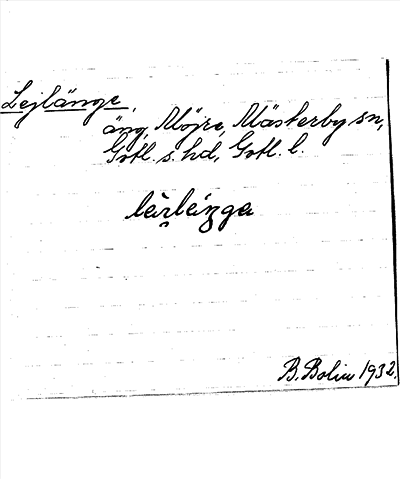 Lejlänge,
äng, Möjre, Mästerby sn,
Gotl. s. hd, Gotl. l.
B. Bolin 1932.